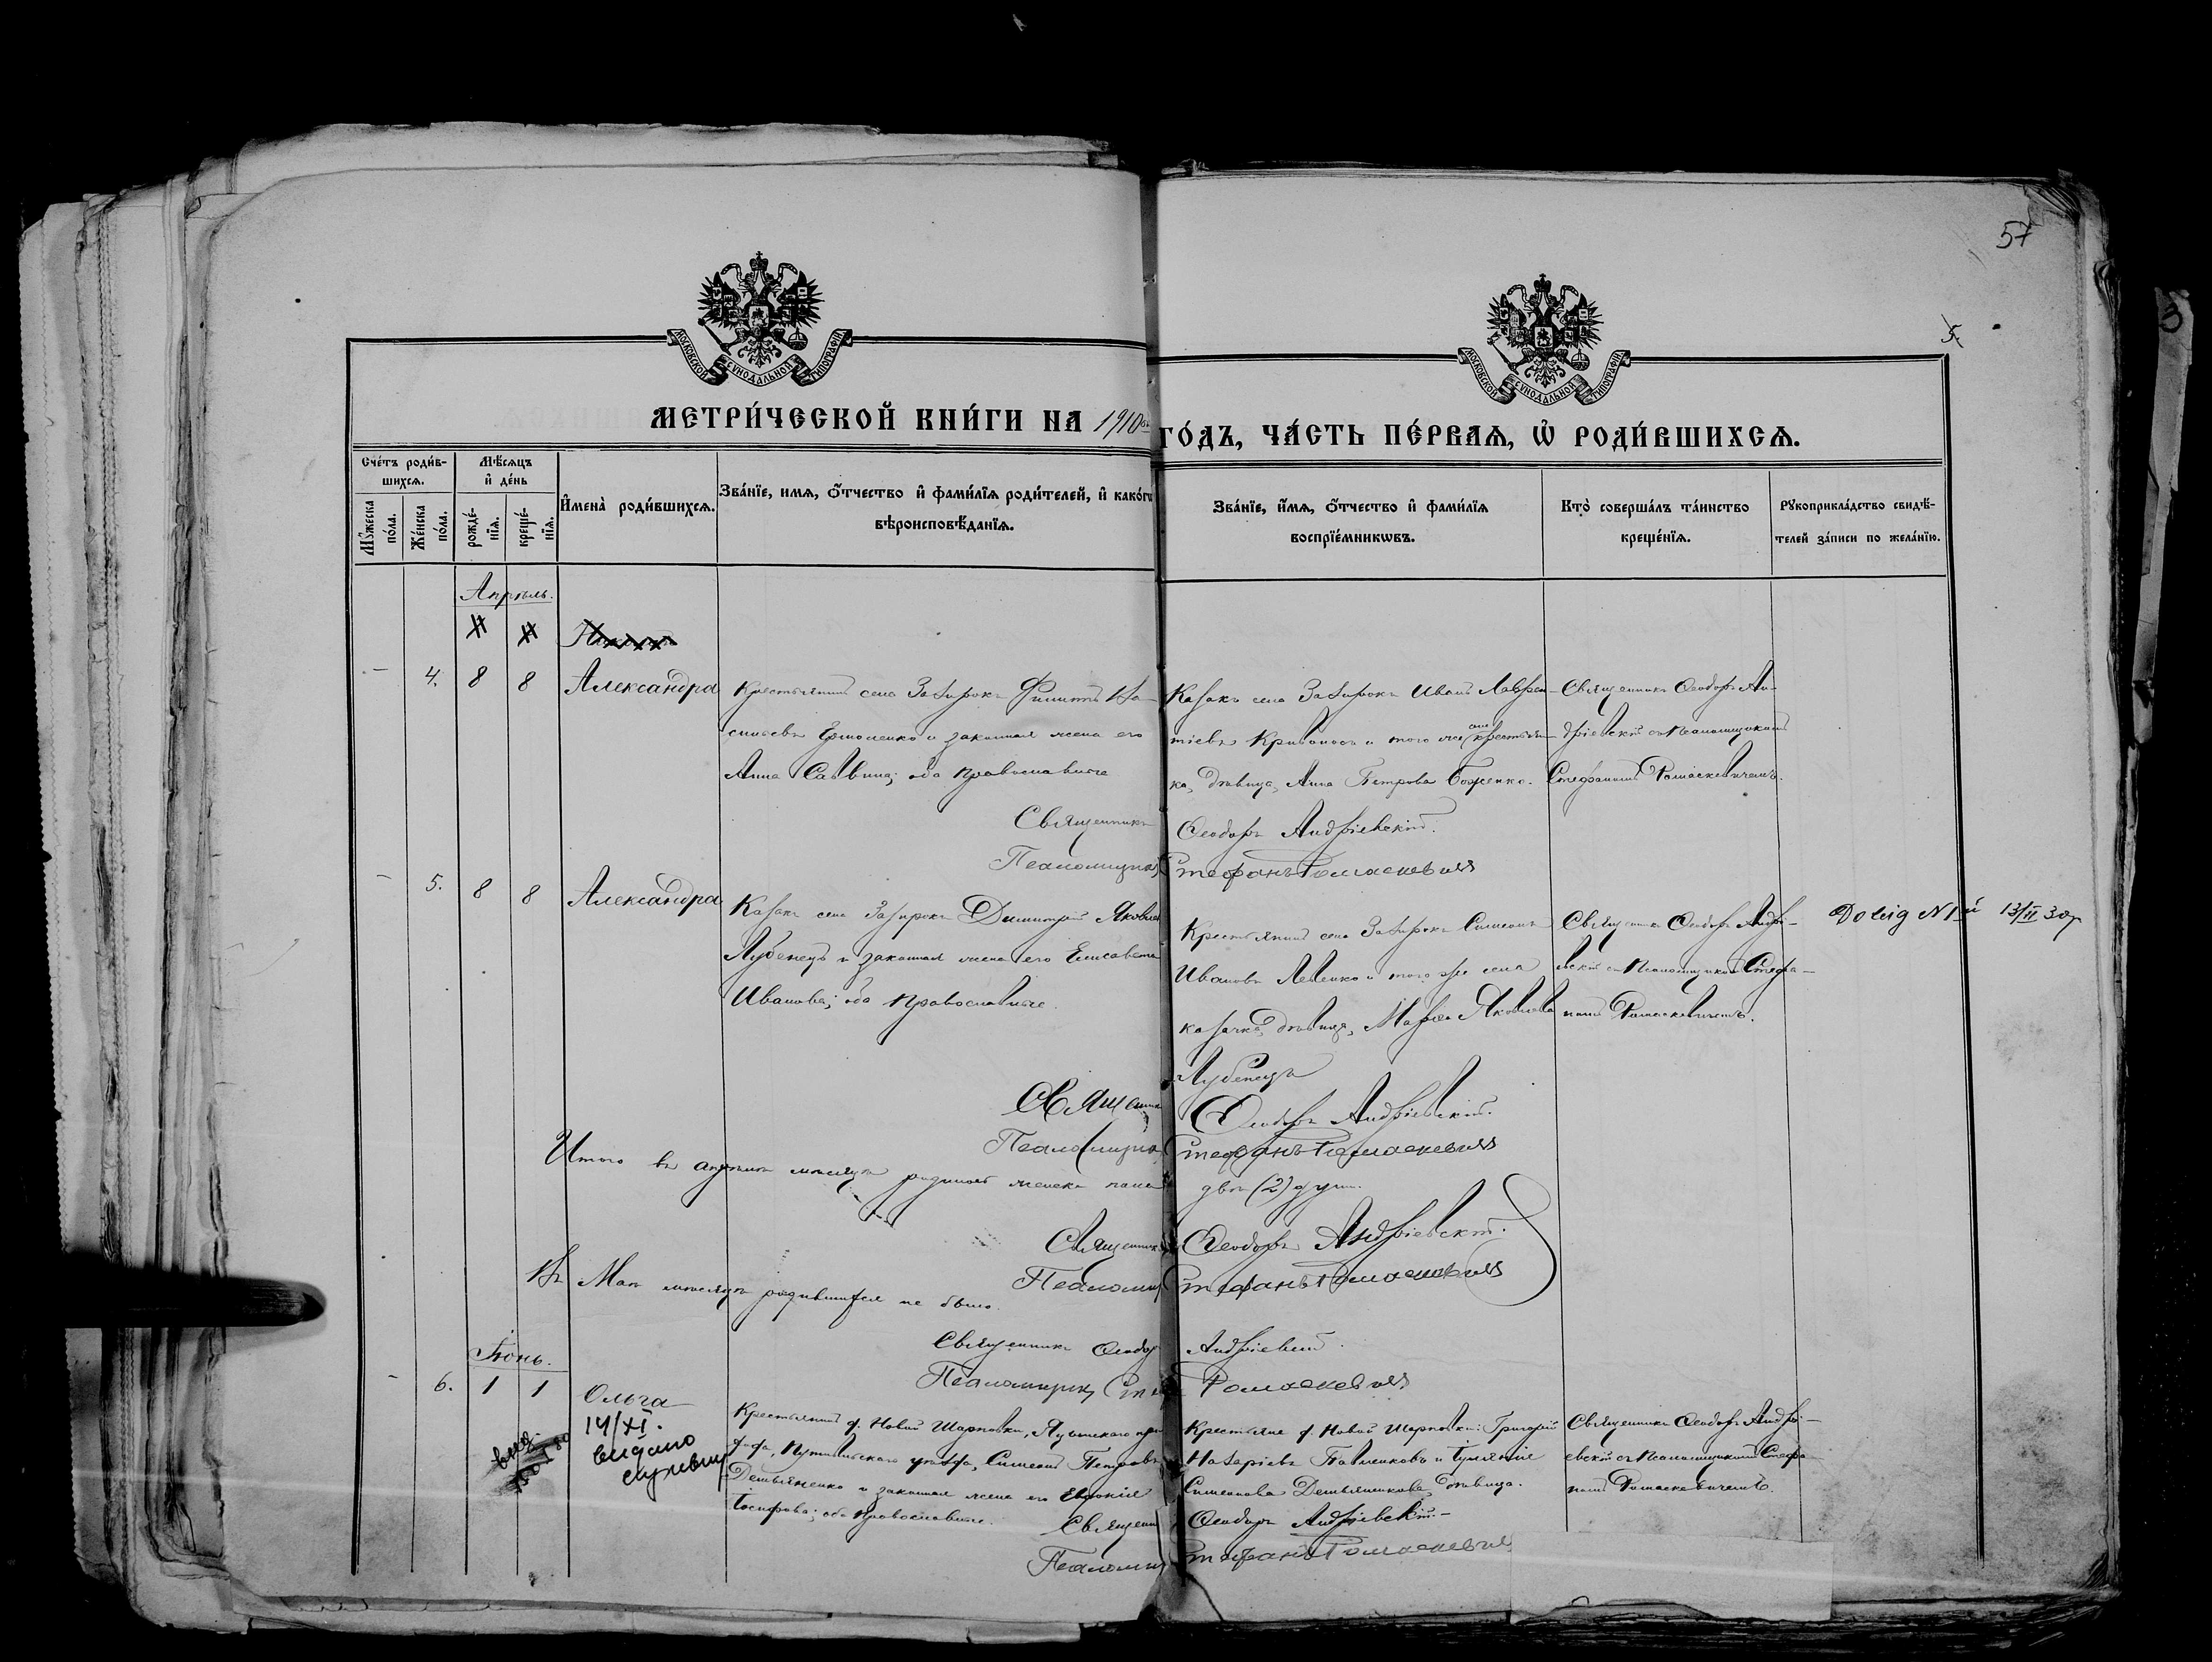 57
3
5.
МОСКОВСКОЙ СѴНОДАЛЬНОЙ ТИПОГРАФІИ
МОСКОВСКОЙ СѴНОДАЛЬНОЙ ТИПОГРАФІИ
МЕТРИ́ЧЕСКОЙ КНИ́ГИ НА 1910
ГО́ДЪ, ЧА́СТЬ ПЕ́РВАѦ, Ѽ РОДИ́ВШИХСѦ.
Сче́тъ роди́в-
шихсѧ.
Мѣ́сѧцъ
и҆ де́нь
Мꙋ́жеска по́ла.
Же́нска по́ла.
рожде́-нїѧ.
креще́-нїѧ.
И҆мена̀ роди́вшихсѧ.
Зва́нїе, имѧ, ѻ҆́тчество и҆ фами́лїѧ роди́телей, и҆ како́гѡ
вѣроисповѣ́данїѧ.
Зва́нїе, и҆́мѧ, ѻ҆́тчество и҆ фами́лїѧ
воспрїе́мникѡвъ.
Кто̀ соверша́лъ та́инство
креще́нїѧ.
Рꙋкоприкла́дство свидѣ́-
телей за́писи по жела́нїю.
Апрѣль.
- 4. 8 8 Александра
Крестьянинъ села Филиппъ Ва-
сильевъ Ермоленко и законная жена его
Анна Саввина; оба православные
Казакъ села Иванъ Лаврен-
тіевъ Кривоносъ и того же села крестьян-
ка, дѣвица, Анна Петрова Боженко.
Священникъ Ѳеодоръ Ан-
дріевскій съ псаломщикомъ
Стефаномъ Ромаскевичемъ.
Священникъ Ѳеодоръ Андріевскій.
Псаломщикъ Стефанъ Ромаскевичъ
- 5. 8 8 Александра
Казакъ села Димитрій Яковлев
Лубенецъ и законная жена его Елисавета
Иванова; оба православные.
Крестьянинъ села Симеонъ
Ивановъ Левенко и того же села
казачка, дѣвица, Марія Яковлева
Лубенецъ
Священникъ Ѳеодоръ Андрі-
евскій съ псаломщикомъ Стефа-
номъ Ромаскевичемъ.
13/II 30р
Священникъ Ѳеодоръ Андріевскій.
Псаломщикъ Стефанъ Ромаскевичъ
Итого въ апрѣлѣ мѣсяцѣ родилось женска пола двѣ (2) души.
Священникъ Ѳеодоръ Андріевскій.
Псаломщикъ Стефанъ Ромаскевичъ
Въ Маѣ мѣсяцѣ родившихся не было.
Священникъ Ѳеодоръ Андріевскій.
Псаломщикъ Ромаскевичъ
Іюнь.
- 6. 1 1 Ольга
14/XI.
видано
Крестьянинъ д. Новой Шарповки,
Путивльскаго уѣзда, Симеонъ Петровъ
Демьяненко и законная жена его Евфимія
Іосифова; оба православные.
Крестьяне д. Новой Шарповки: Григорій
Назаріевъ Павленковъ и
Симеонова Демьяненкова, дѣвица.
Священникъ Ѳеодоръ Андрі-
евскій съ псаломщикомъ Стефа-
номъ Ромаскевичемъ.
Священникъ Ѳеодоръ Андріевскій.
Псаломщикъ Стефанъ Ромаскевичъ